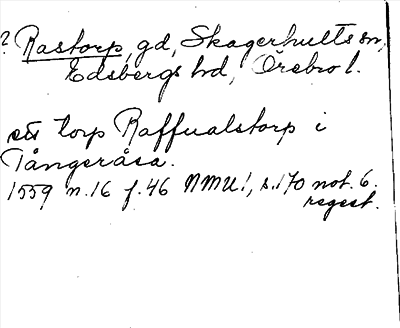 ? Rastorp, gd, Skagerhults sn,
Edsbergs hd, Örebro l.
ett torp Raffualstorp i
Tångeråsa.
1559 n. 16 f. 46 NMU!, s. 170 not. 6.
regest.